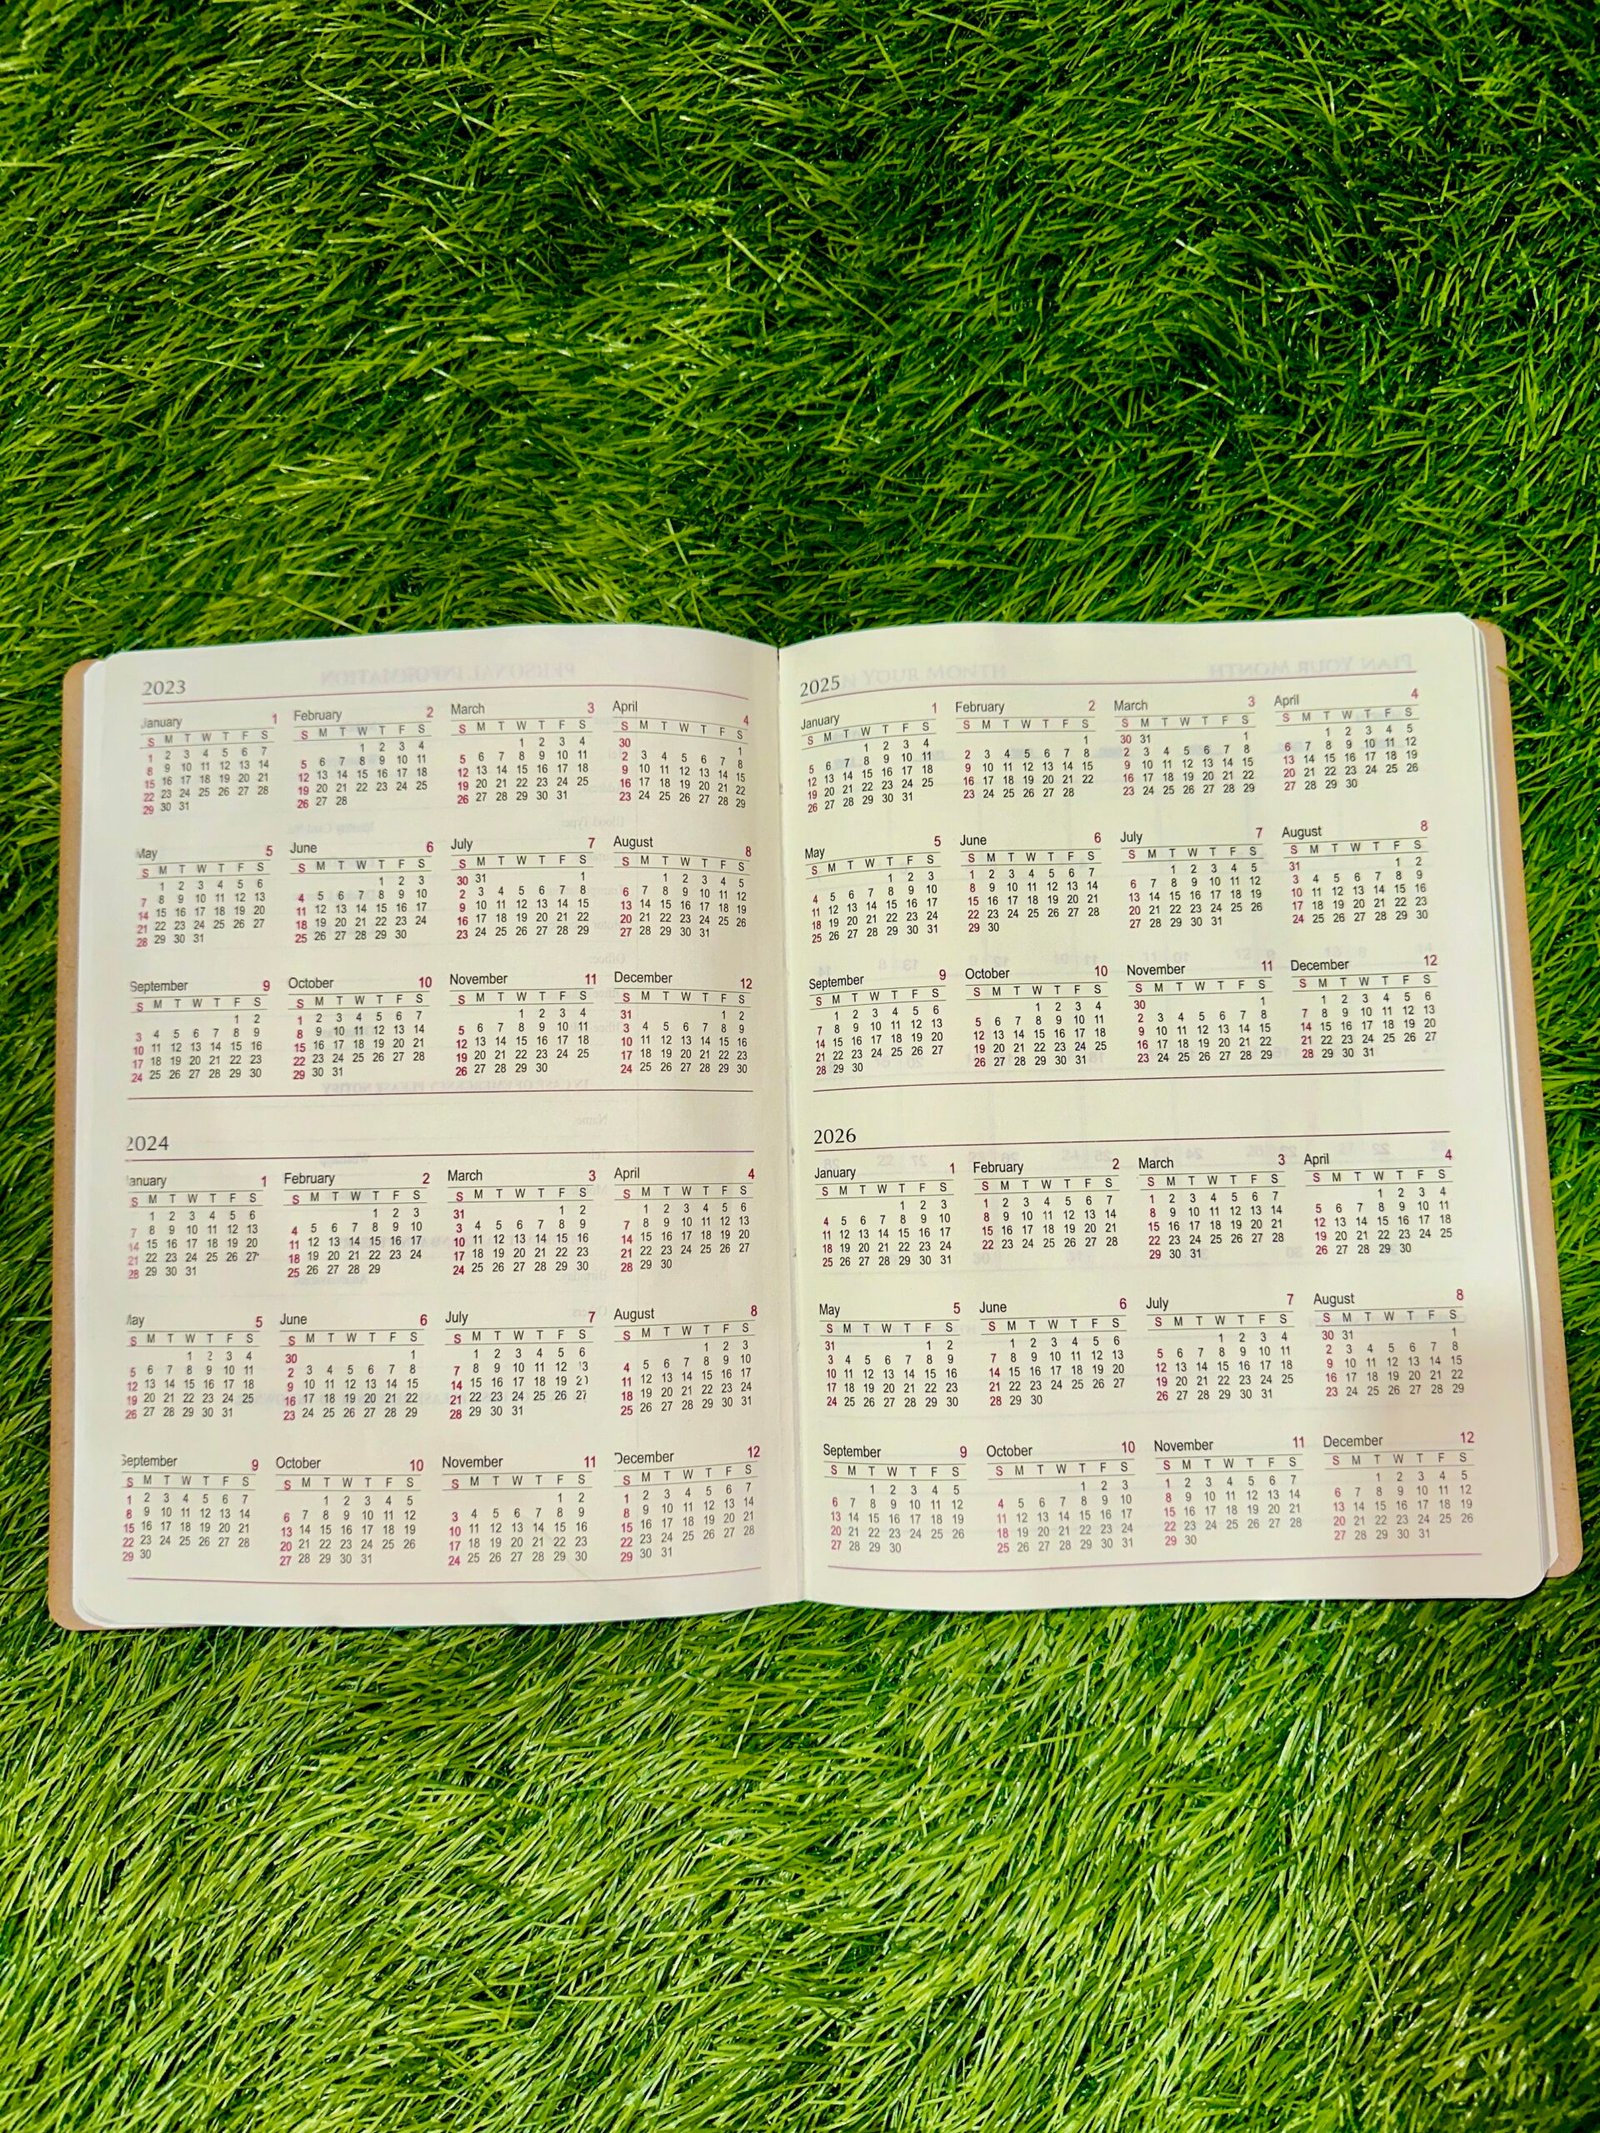 2023
January 1
S M T W T F S
1 2 3 4 5 6 7
8 9 10 11 12 13 14
15 16 17 18 19 20 21
22 23 24 25 26 27 28
29 30 31
February 2
S M T W T F S
1 2 3 4
5 6 7 8 9 10 11
12 13 14 15 16 17 18
19 20 21 22 23 24 25
26 27 28
March 3
S M T W T F S
1 2 3 4
5 6 7 8 9 10 11
12 13 14 15 16 17 18
19 20 21 22 23 24 25
26 27 28 29 30 31
April 4
S M T W T F S
30 1
2 3 4 5 6 7 8
9 10 11 12 13 14 15
16 17 18 19 20 21 22
23 24 25 26 27 28 29
May 5
S M T W T F S
1 2 3 4 5 6
7 8 9 10 11 12 13
14 15 16 17 18 19 20
21 22 23 24 25 26 27
28 29 30 31
June 6
S M T W T F S
1 2 3
4 5 6 7 8 9 10
11 12 13 14 15 16 17
18 19 20 21 22 23 24
25 26 27 28 29 30
July 7
S M T W T F S
30 31 1
2 3 4 5 6 7 8
9 10 11 12 13 14 15
16 17 18 19 20 21 22
23 24 25 26 27 28 29
August 8
S M T W T F S
1 2 3 4 5
6 7 8 9 10 11 12
13 14 15 16 17 18 19
20 21 22 23 24 25 26
27 28 29 30 31
September 9
S M T W T F S
1 2
3 4 5 6 7 8 9
10 11 12 13 14 15 16
17 18 19 20 21 22 23
24 25 26 27 28 29 30
October 10
S M T W T F S
1 2 3 4 5 6 7
8 9 10 11 12 13 14
15 16 17 18 19 20 21
22 23 24 25 26 27 28
29 30 31
November 11
S M T W T F S
1 2 3 4
5 6 7 8 9 10 11
12 13 14 15 16 17 18
19 20 21 22 23 24 25
26 27 28 29 30
December 12
S M T W T F S
31 1 2
3 4 5 6 7 8 9
10 11 12 13 14 15 16
17 18 19 20 21 22 23
24 25 26 27 28 29 30
2024
January 1
S M T W T F S
1 2 3 4 5 6
7 8 9 10 11 12 13
14 15 16 17 18 19 20
21 22 23 24 25 26 27
28 29 30 31
February 2
S M T W T F S
1 2 3
4 5 6 7 8 9 10
11 12 13 14 15 16 17
18 19 20 21 22 23 24
25 26 27 28 29
March 3
S M T W T F S
31 1 2
3 4 5 6 7 8 9
10 11 12 13 14 15 16
17 18 19 20 21 22 23
24 25 26 27 28 29 30
April 4
S M T W T F S
1 2 3 4 5 6
7 8 9 10 11 12 13
14 15 16 17 18 19 20
21 22 23 24 25 26 27
28 29 30
May 5
S M T W T F S
1 2 3 4
5 6 7 8 9 10 11
12 13 14 15 16 17 18
19 20 21 22 23 24 25
26 27 28 29 30 31
June 6
S M T W T F S
30 1
2 3 4 5 6 7 8
9 10 11 12 13 14 15
16 17 18 19 20 21 22
23 24 25 26 27 28 29
July 7
S M T W T F S
1 2 3 4 5 6
7 8 9 10 11 12 13
14 15 16 17 18 19 20
21 22 23 24 25 26 27
28 29 30 31
August 8
S M T W T F S
1 2 3
4 5 6 7 8 9 10
11 12 13 14 15 16 17
18 19 20 21 22 23 24
25 26 27 28 29 30 31
September 9
S M T W T F S
1 2 3 4 5 6 7
8 9 10 11 12 13 14
15 16 17 18 19 20 21
22 23 24 25 26 27 28
29 30
October 10
S M T W T F S
1 2 3 4 5
6 7 8 9 10 11 12
13 14 15 16 17 18 19
20 21 22 23 24 25 26
27 28 29 30 31
November 11
S M T W T F S
1 2
3 4 5 6 7 8 9
10 11 12 13 14 15 16
17 18 19 20 21 22 23
24 25 26 27 28 29 30
December 12
S M T W T F S
1 2 3 4 5 6 7
8 9 10 11 12 13 14
15 16 17 18 19 20 21
22 23 24 25 26 27 28
29 30 31
2025
January 1
S M T W T F S
1 2 3 4
5 6 7 8 9 10 11
12 13 14 15 16 17 18
19 20 21 22 23 24 25
26 27 28 29 30 31
February 2
S M T W T F S
1
2 3 4 5 6 7 8
9 10 11 12 13 14 15
16 17 18 19 20 21 22
23 24 25 26 27 28
March 3
S M T W T F S
30 31 1
2 3 4 5 6 7 8
9 10 11 12 13 14 15
16 17 18 19 20 21 22
23 24 25 26 27 28 29
April 4
S M T W T F S
1 2 3 4 5
6 7 8 9 10 11 12
13 14 15 16 17 18 19
20 21 22 23 24 25 26
27 28 29 30
May 5
S M T W T F S
1 2 3
4 5 6 7 8 9 10
11 12 13 14 15 16 17
18 19 20 21 22 23 24
25 26 27 28 29 30 31
June 6
S M T W T F S
1 2 3 4 5 6 7
8 9 10 11 12 13 14
15 16 17 18 19 20 21
22 23 24 25 26 27 28
29 30
July 7
S M T W T F S
1 2 3 4 5
6 7 8 9 10 11 12
13 14 15 16 17 18 19
20 21 22 23 24 25 26
27 28 29 30 31
August 8
S M T W T F S
31 1 2
3 4 5 6 7 8 9
10 11 12 13 14 15 16
17 18 19 20 21 22 23
24 25 26 27 28 29 30
September 9
S M T W T F S
1 2 3 4 5 6
7 8 9 10 11 12 13
14 15 16 17 18 19 20
21 22 23 24 25 26 27
28 29 30
October 10
S M T W T F S
1 2 3 4
5 6 7 8 9 10 11
12 13 14 15 16 17 18
19 20 21 22 23 24 25
26 27 28 29 30 31
November 11
S M T W T F S
30 1
2 3 4 5 6 7 8
9 10 11 12 13 14 15
16 17 18 19 20 21 22
23 24 25 26 27 28 29
December 12
S M T W T F S
1 2 3 4 5 6
7 8 9 10 11 12 13
14 15 16 17 18 19 20
21 22 23 24 25 26 27
28 29 30 31
2026
January 1
S M T W T F S
1 2 3
4 5 6 7 8 9 10
11 12 13 14 15 16 17
18 19 20 21 22 23 24
25 26 27 28 29 30 31
February 2
S M T W T F S
1 2 3 4 5 6 7
8 9 10 11 12 13 14
15 16 17 18 19 20 21
22 23 24 25 26 27 28
March 3
S M T W T F S
1 2 3 4 5 6 7
8 9 10 11 12 13 14
15 16 17 18 19 20 21
22 23 24 25 26 27 28
29 30 31
April 4
S M T W T F S
1 2 3 4
5 6 7 8 9 10 11
12 13 14 15 16 17 18
19 20 21 22 23 24 25
26 27 28 29 30
May 5
S M T W T F S
31 1 2
3 4 5 6 7 8 9
10 11 12 13 14 15 16
17 18 19 20 21 22 23
24 25 26 27 28 29 30
June 6
S M T W T F S
1 2 3 4 5 6
7 8 9 10 11 12 13
14 15 16 17 18 19 20
21 22 23 24 25 26 27
28 29 30
July 7
S M T W T F S
1 2 3 4
5 6 7 8 9 10 11
12 13 14 15 16 17 18
19 20 21 22 23 24 25
26 27 28 29 30 31
August 8
S M T W T F S
30 31 1
2 3 4 5 6 7 8
9 10 11 12 13 14 15
16 17 18 19 20 21 22
23 24 25 26 27 28 29
September 9
S M T W T F S
1 2 3 4 5
6 7 8 9 10 11 12
13 14 15 16 17 18 19
20 21 22 23 24 25 26
27 28 29 30
October 10
S M T W T F S
1 2 3
4 5 6 7 8 9 10
11 12 13 14 15 16 17
18 19 20 21 22 23 24
25 26 27 28 29 30 31
November 11
S M T W T F S
1 2 3 4 5 6 7
8 9 10 11 12 13 14
15 16 17 18 19 20 21
22 23 24 25 26 27 28
29 30
December 12
S M T W T F S
1 2 3 4 5
6 7 8 9 10 11 12
13 14 15 16 17 18 19
20 21 22 23 24 25 26
27 28 29 30 31